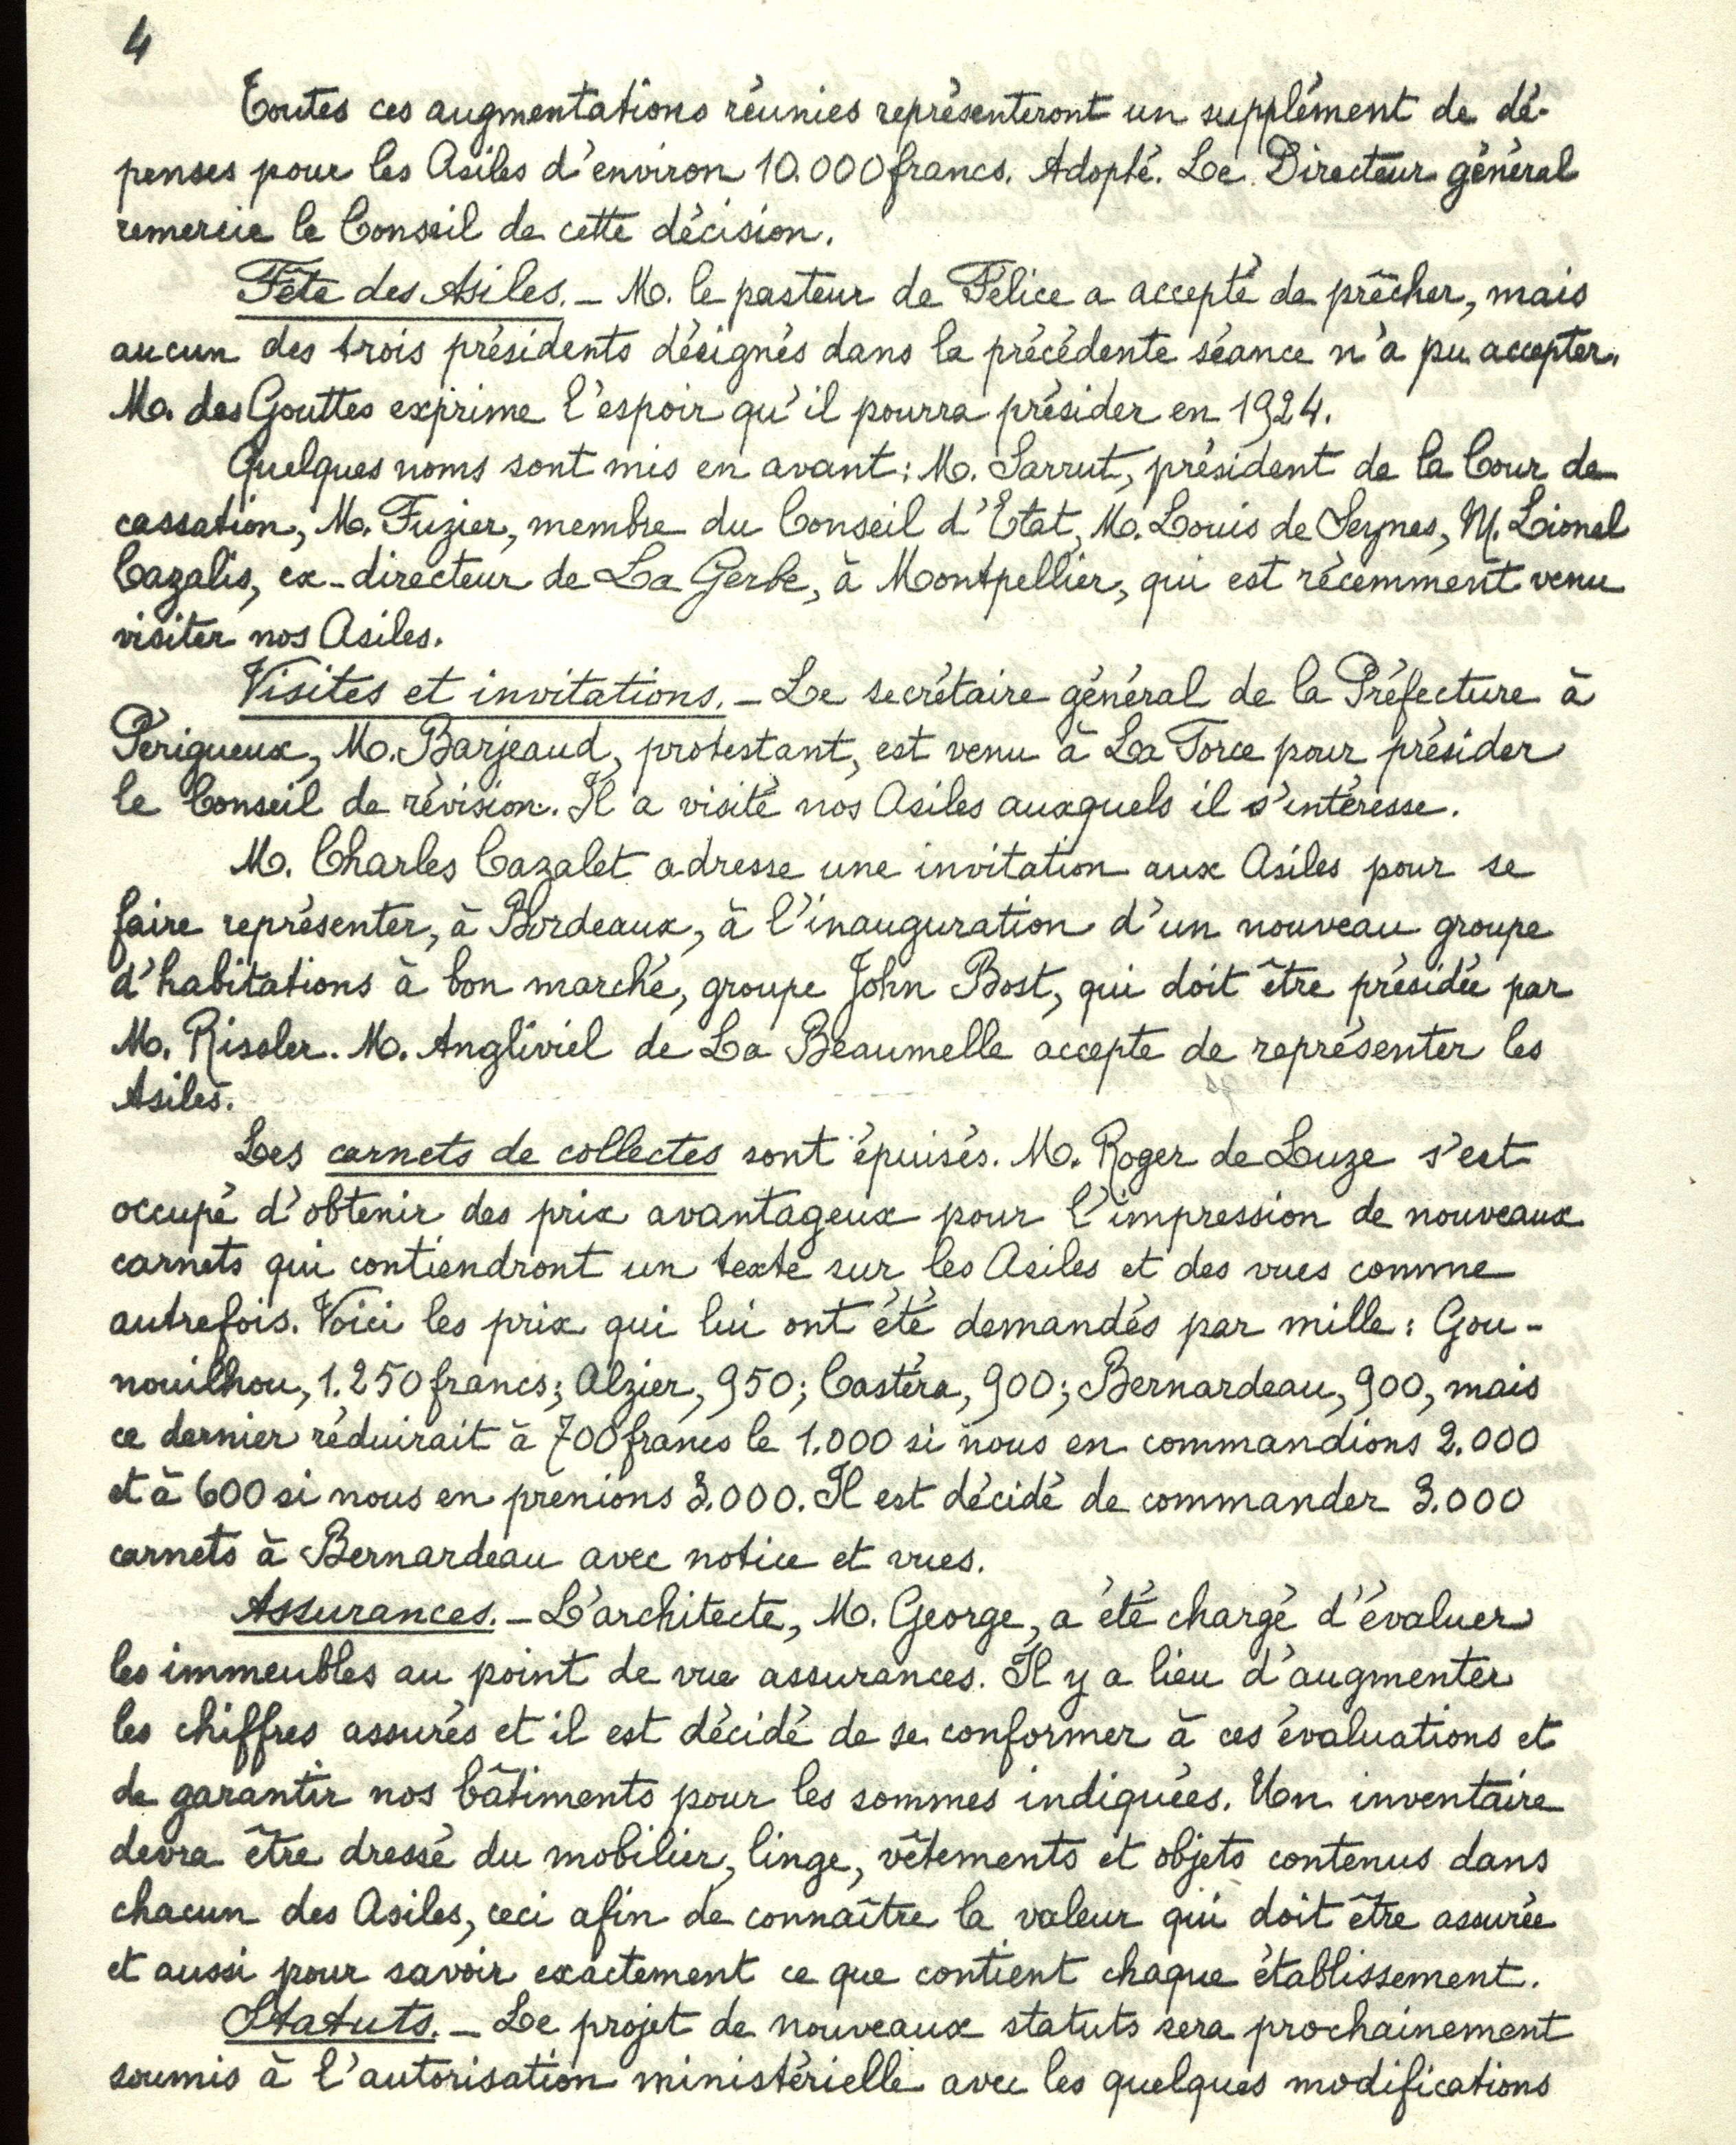 4
Toutes ces augmentations réunies représenteront un supplément de dé-
penses pour les Asiles d'environ 10.000 francs. Adopté. Le Directeur général
remercie le Conseil de cette décision.
Fête des Asiles. _ M. le pasteur de Félice a accepté de prêcher, mais
aucun des trois présidents désignés dans la précédente séance n'a pu accepter.
M. des Gouttes exprime l'espoir qu'il pourra présider en 1924.
Quelques noms sont mis en avant : M. Sarrut, président de la Cour de
cassation, M. Fuzier, membre du Conseil d'Etat, M. Louis de Seynes, M. Lionel
Cazalis, ex-directeur de La Gerbe, à Montpellier, qui est récemment venu
visiter nos Asiles.
Visites et invitations. _ Le secrétaire général de la Préfecture à
Périgueux, M. Barjeaud, protestant, est venu à La Force pour présider
le Conseil de révision. Il a visité nos Asiles auxquels il s'intéresse.
M. Charles Cazalet adresse une invitation aux Asiles pour se
faire représenter, à Bordeaux, à l'inauguration d'un nouveau groupe
d'habitations à bon marché, groupe John Bost, qui doit être présidée par
M. Rissler. M. Angliviel de La Beaumelle accepte de représenter les
Asiles.
Les carnets de collectes sont épuisés. M. Roger de Luze s'est
occupé d'obtenir des prix avantageux pour l'impression de nouveaux
carnets qui contiendront un texte sur les Asiles et des vues comme
autrefois. Voici les prix qui lui ont été demandés par mille : Gou-
nouilhou, 1.250 francs ; Alzier, 950 ; Castéra, 900 ; Bernardeau, 900, mais
ce dernier réduirait à 700 francs le 1.000 si nous en commandions 2.000
et à 600 si nous en prenions 3.000. Il est décidé de commander 3.000
carnets à Bernardeau avec notice et vues.
Assurances. _ L'architecte, M. George, a été chargé d'évaluer
les immeubles au point de vue assurances. Il y a lieu d'augmenter
les chiffres assurés et il est décidé de se conformer à ces évaluations et
de garantir nos bâtiments pour les sommes indiquées. Un inventaire
devra être dressé du mobilier, linge, vêtements et objets contenus dans
chacun des Asiles, ceci afin de connaître la valeur qui doit être assurée
et aussi pour savoir exactement ce que contient chaque établissement.
Statuts. _ Le projet de nouveaux statuts sera prochainement
soumis à l'autorisation ministérielle avec les quelques modifications